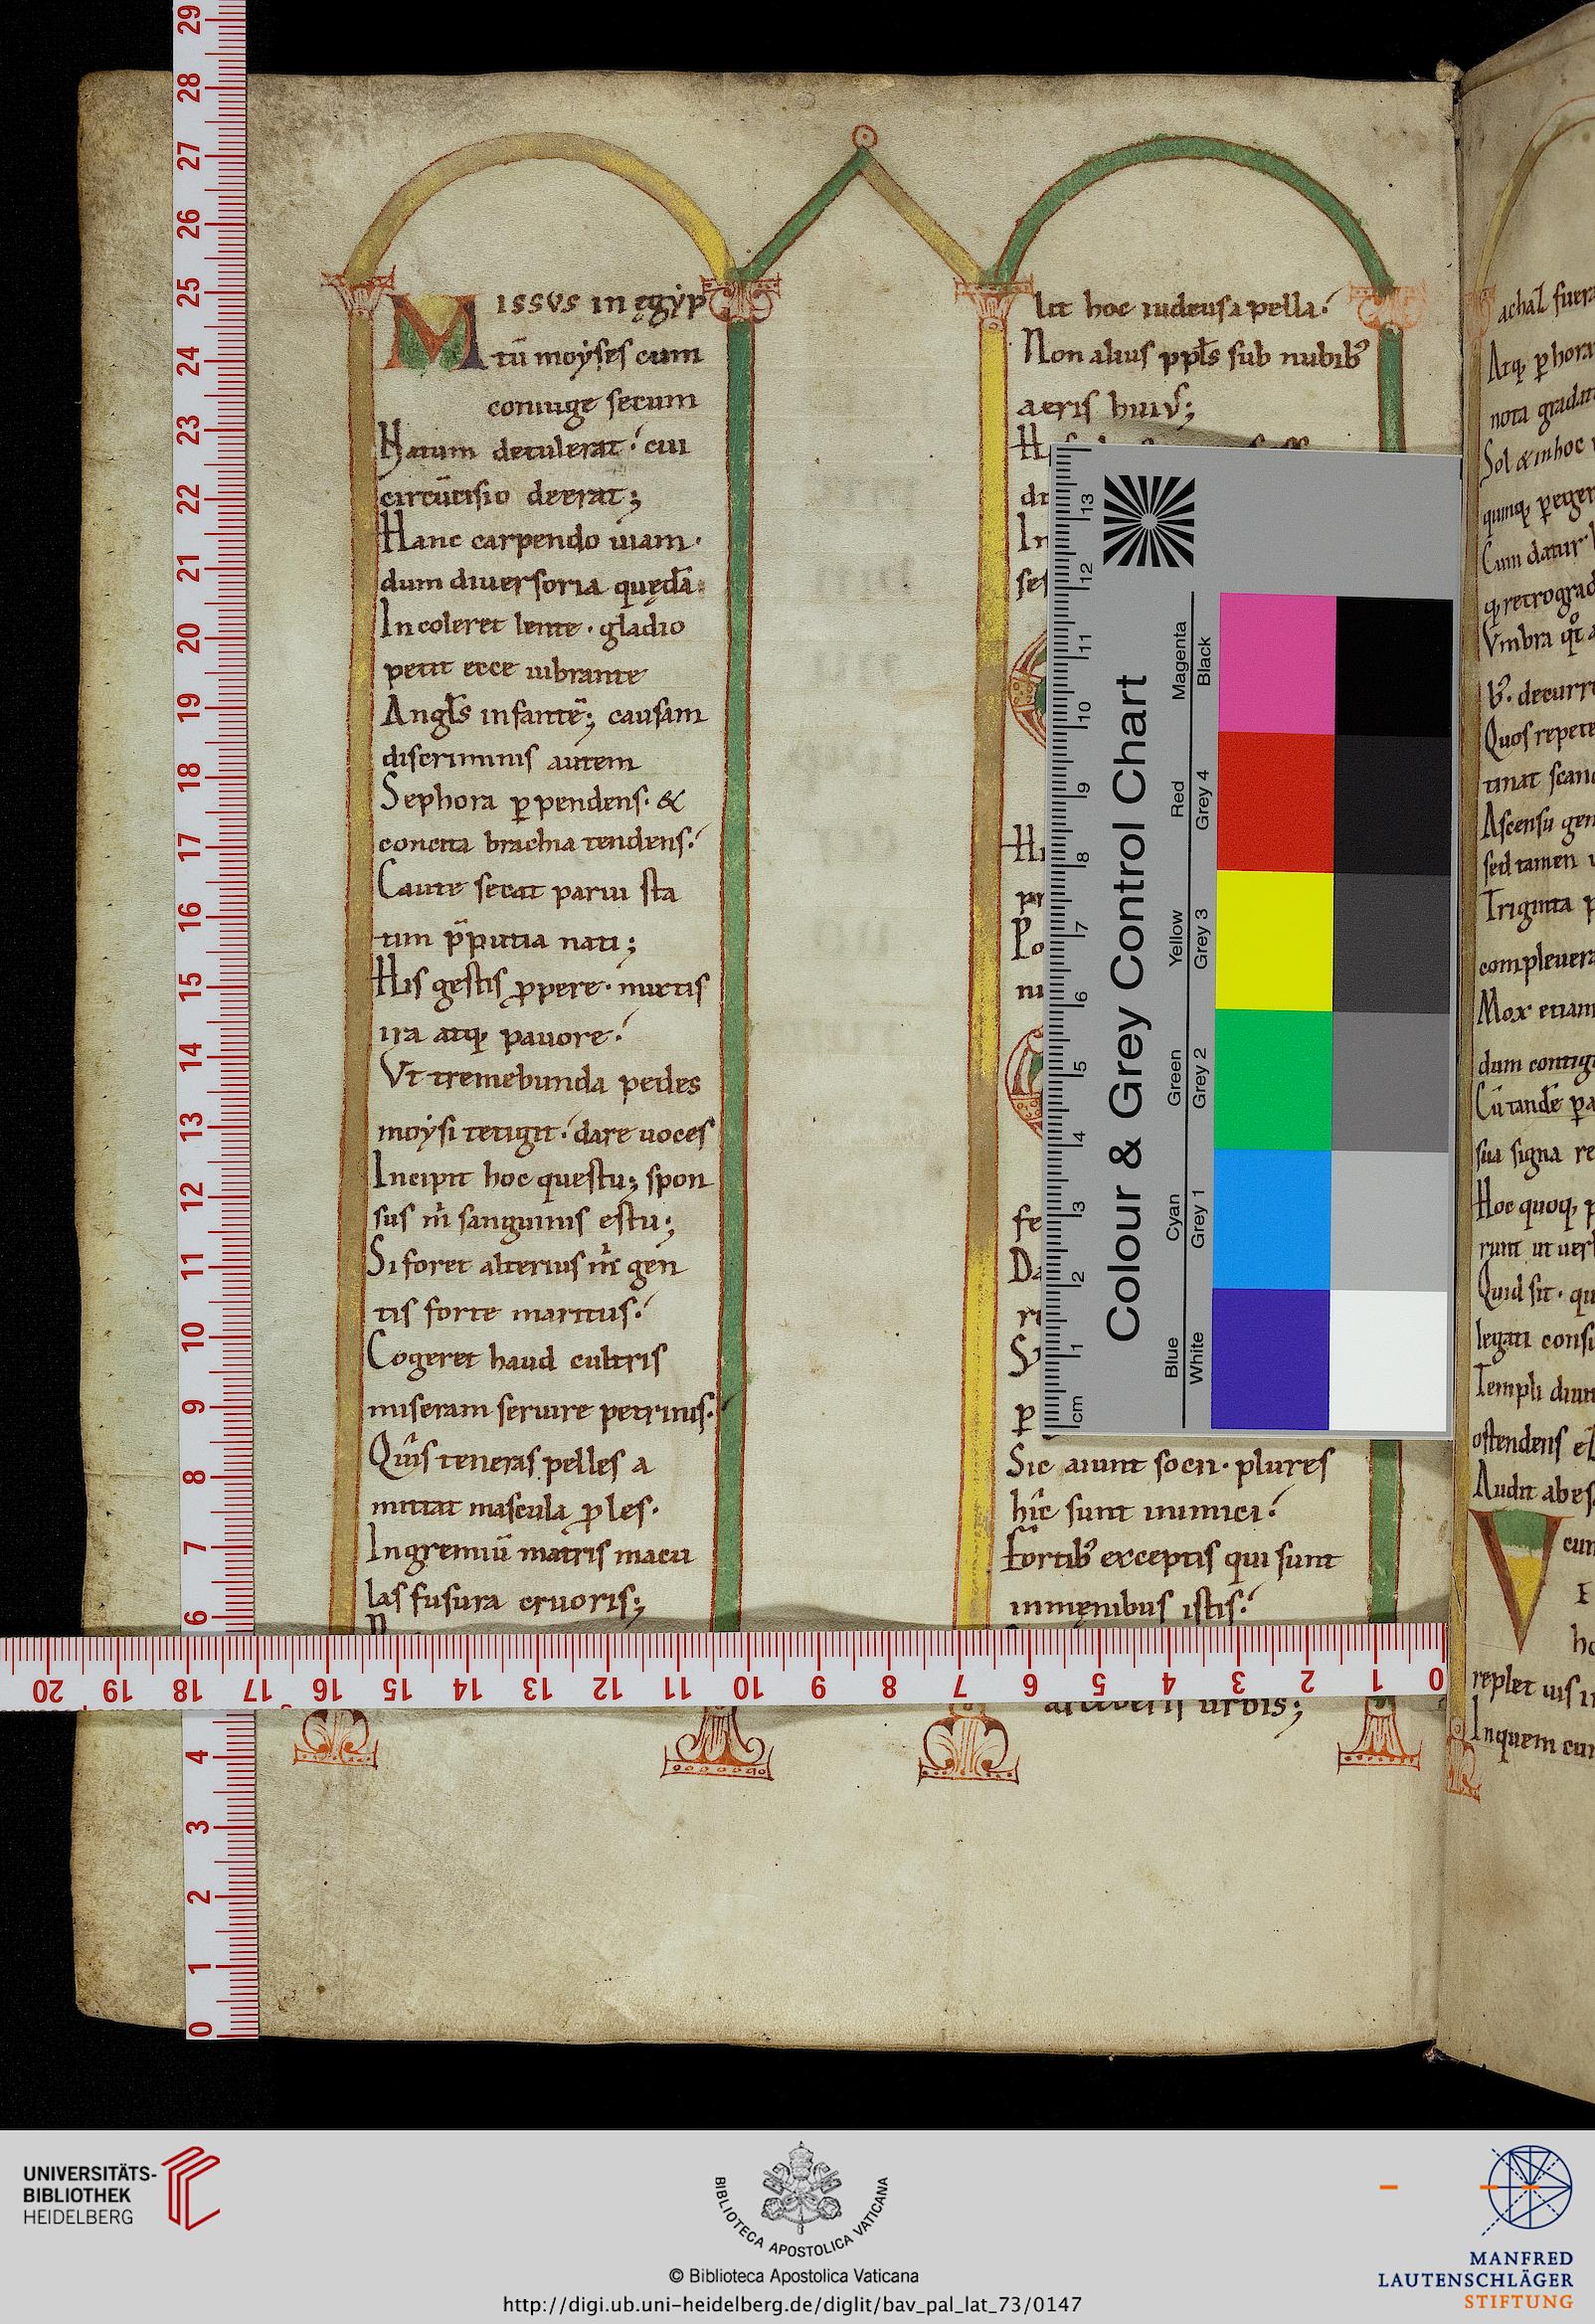 Missvs in ęgẏp
tū moẏses cum
coniuge secum
Natum detulerat: cui
circūcisio deerat;
Hanc carpendo uiam·
dum diuersoria quędā
Incoleret lente· gladio
petit ecce uibrante
Angl̄s infantē; causam
discriminis autem
Sephora ꝑpendens· &
concita brachia tendens:
Caute secat parui sta
tim p̄putia nati;
His gestis ꝓpere· mixtis
ira atq; pauore:
Vt tremebunda pedes
moẏsi tetigit: dare uoces
Incipit hoc questu; spon
sus m̄ sanguinis estu;
Si foret alterius m̄ gen
tis forte maritus:
Cogeret haud cultris
miseram seruire petrinis·
Quis teneras pelles a
mittat mascula ꝓles·
In gremiū matris macu
las fusura cruoris;
lit hoc iudeus apella:
Non alius ppl̄s sub nubib;
aeris huiꝰ;
In
Sic aiunt socii· plures
hic sunt inimici:
Fortib; exceptis qui sunt
in męnibus istis:
urbis;
achaz
Atq; ꝑ hora
nota gradat
Sol & in hoc
Cum datur
Vmbra
decurr
Quos repete
tinat scan
Ascensu gen
sed tamen
Triginta
compleuera
Mox etiam
dum contig
sua signa re
Hoc quoq;
runt ut uer
Quid sit· qu
legati consu
Templi diuit
ostendens
Audit abes
V
cum
replet uis
In quem cum
29
28
27
26
25
24
23
22
21
20
19
18
17
16
15
14
13
12
11
10
9
8
7
6
4
3
2
1
0
20 19 18 17 16 15 14 13 12 11 10 9 8 7 6 5 4 3 2 1 0
Colour & Grey Control Chart
cm 1 2 3 4 5 6 7 8 9 10 11 12 13
Blue Cyan Green Yellow Red Magenta
White Grey 1 Grey 2 Grey 3 Grey 4 Black
UNIVERSITÄTS-
BIBLIOTHEK
HEIDELBERG
BIBLIOTECA APOSTOLICA VATICANA
© Biblioteca Apostolica Vaticana
http://digi.ub.uni-heidelberg.de/diglit/bav_pal_lat_73/0147
MANFRED
LAUTENSCHLÄGER
STIFTUNG